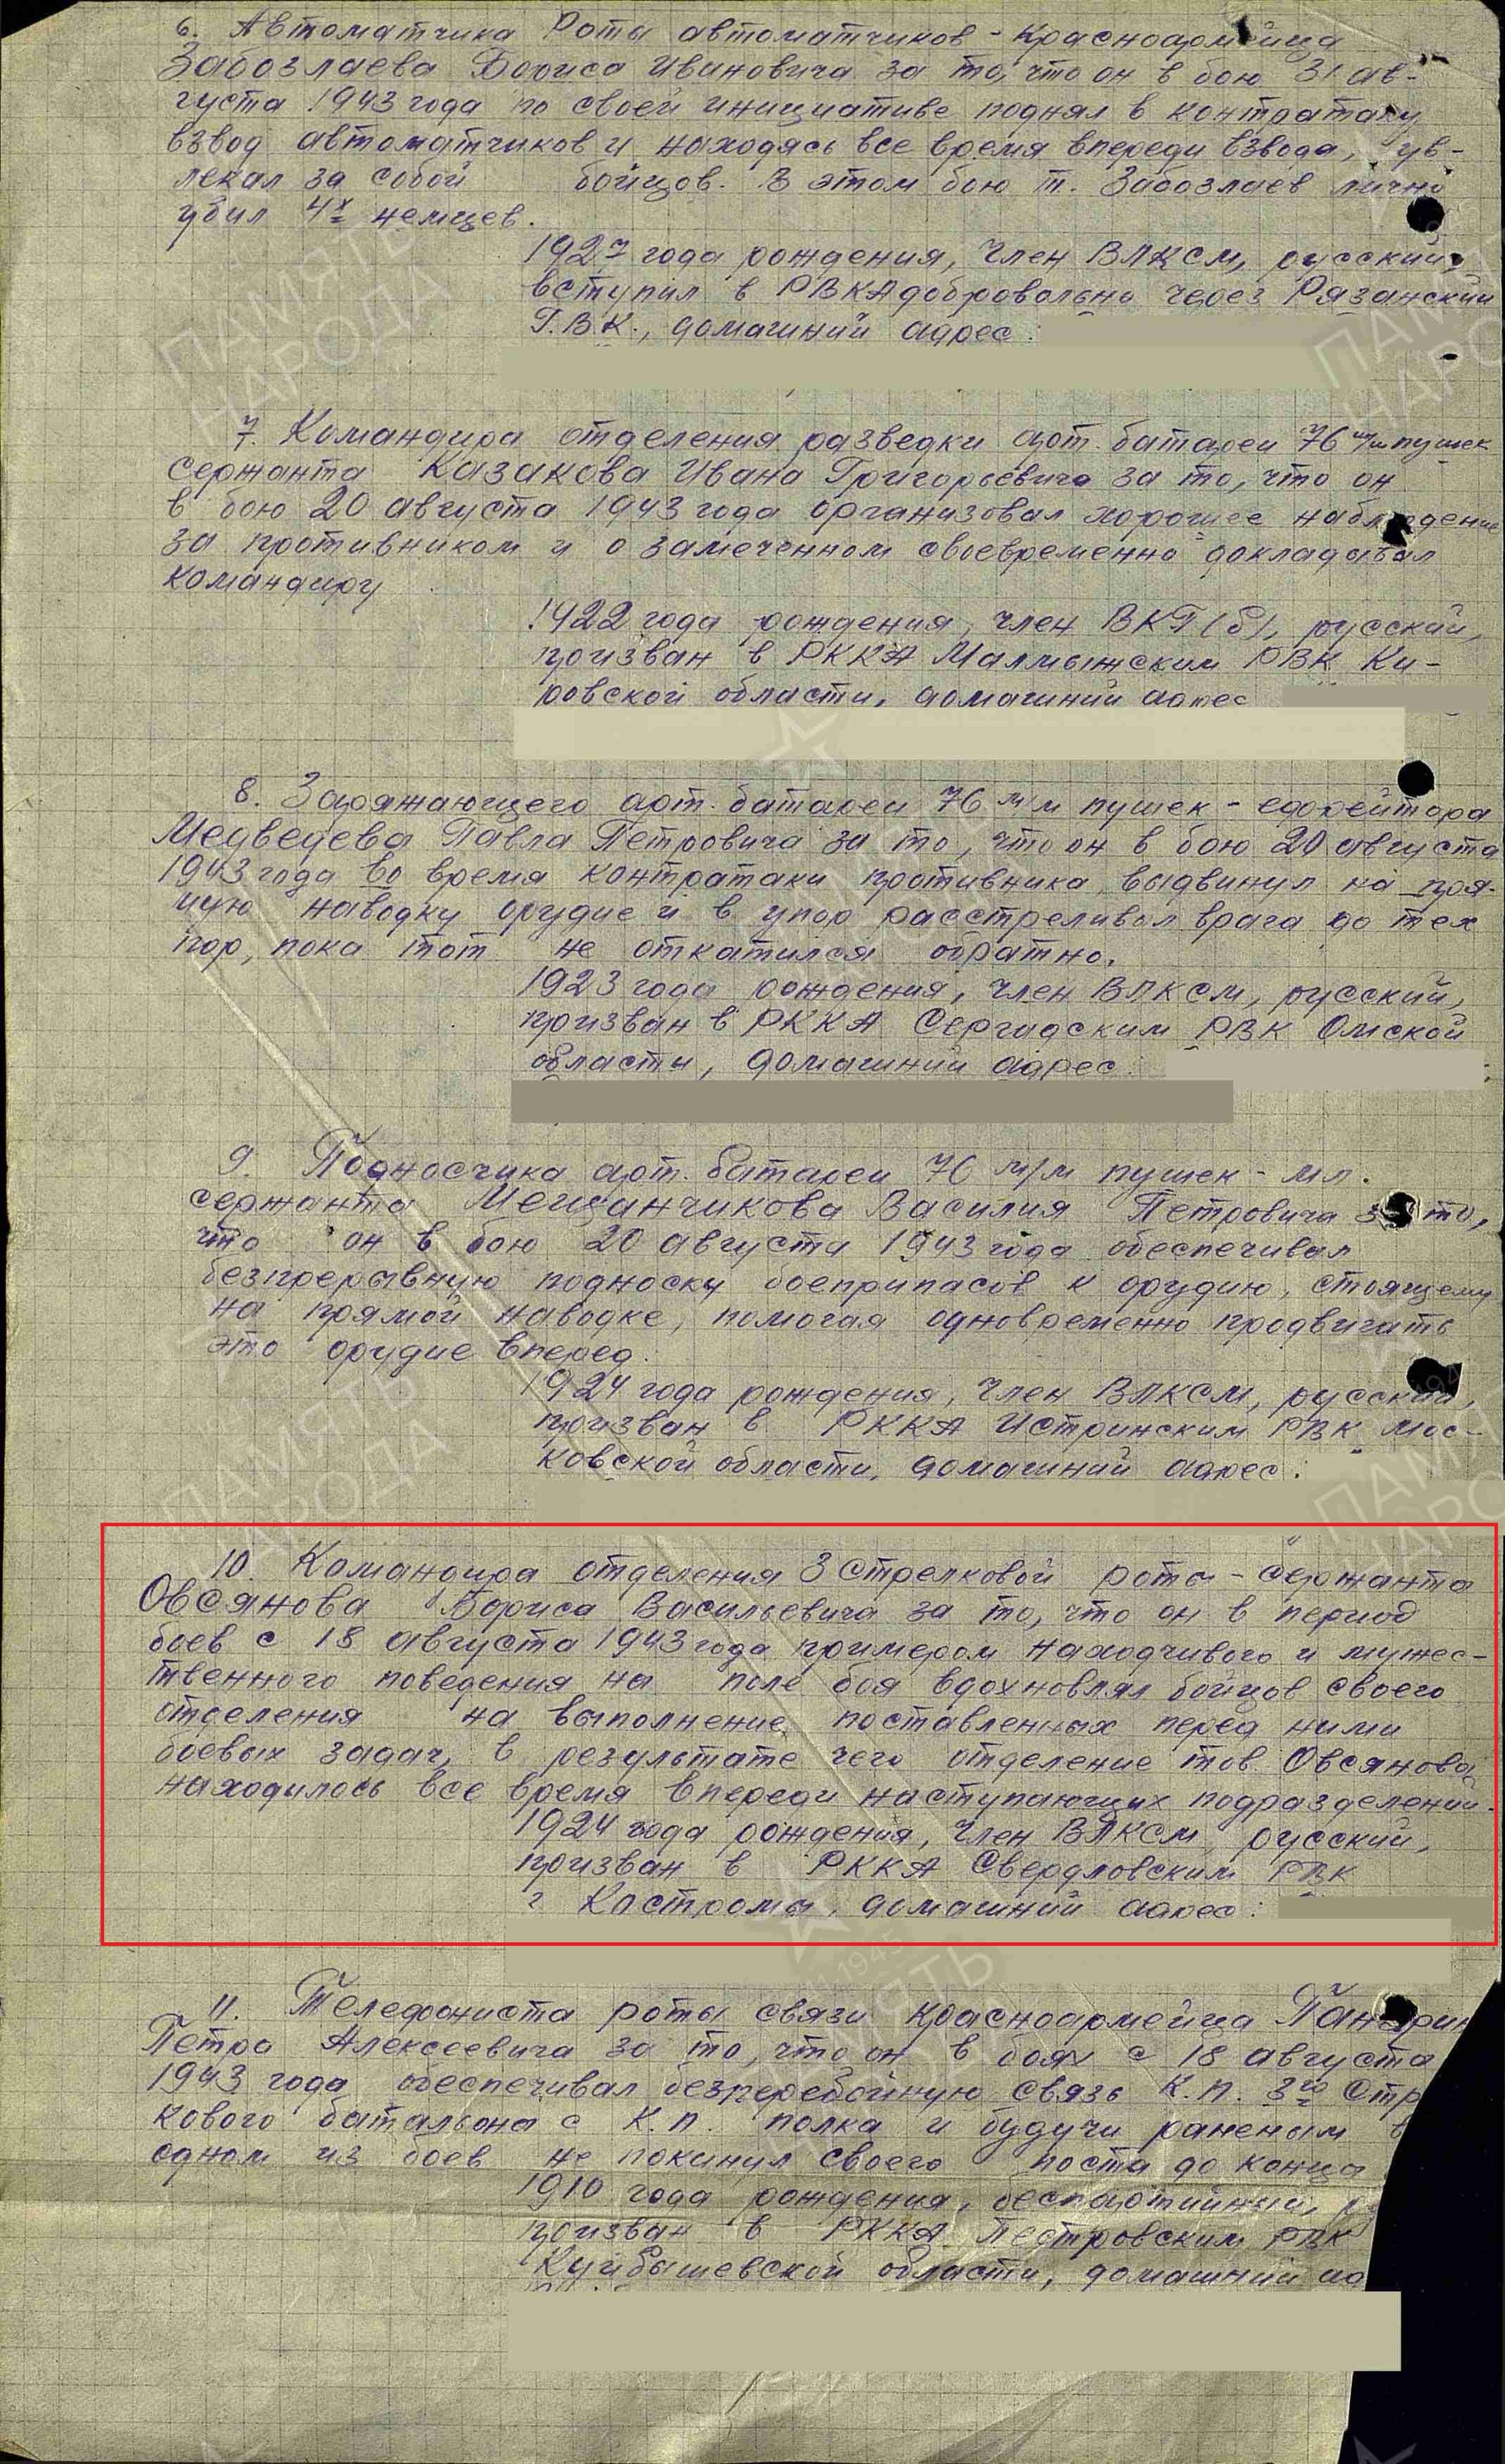 6. Автоматчика Роты автоматчиков - Красноармейца
Забозлаева Бориса Ивановича за то, что он в бою 31 ав-
густа 1943 года по своей инициативе поднял в контратаку
взвод автоматчиков и находясь все время впереди взвода, ув-
лекал за собой бойцов. В этом бою т. Забозлаев лично
убил 4х немцев.
1927 года рождения, член ВЛКСМ, русский,
вступил в РВКА добровольно через Рязанский
Г.В.К., домашний адрес:
7. Командира отделения разведки арт. батареи 76 м/м пушек
Сержанта Казакова Ивана Григорьевича за то, что он
в бою 20 августа 1943 года организовал хорошее наблюдение
за противником и о замеченном своевременно докладывал
командиру
1922 года рождения, член ВКП(б), русский,
призван в РККА Малмыжским РВК Ки-
ровской области, домашний адрес
8. Заряжающего арт. батареи 76 м/м пушек - ефрейтора
Медведева Павла Петровича за то, что он в бою 20 августа
1943 года во время контратаки противника выдвинул на пря-
мую наводку орудие и в упор расстреливал врага до тех
пор, пока тот не откатился обратно.
1923 года рождения, член ВЛКСМ, русский,
призван в РККА Сергадским РВК Омской
области, домашний адрес:
9. Подносчика арт. батареи 76 м/м пушек - мл.
сержанта Мещанчикова Василия Петровича за то,
что он в бою 20 августа 1943 года обеспечивал
безпрерывную подноску боеприпасов к орудию, стоящему
на прямой наводке, помогая одновременно продвигать
это орудие вперед.
1924 года рождения, член ВЛКСМ, русский,
призван в РККА Истринским РВК Мос-
ковской области, домашний адрес:
10. Командира отделения 3 Стрелковой роты - Сержанта
Овсянова Бориса Васильевича за то, что он в период
боев с 18 августа 1943 года примером находчивого и мужес-
твенного поведения на поле боя вдохновлял бойцов своего
отделения на выполнение поставленных перед ними
боевых задач, в результате чего отделение тов. Овсянова
находилось все время впереди наступающих подразделений.
1924 года рождения, член ВЛКСМ, русский,
призван в РККА Свердловским РВК
г. Костромы, домашний адрес:
11. Телефониста роты связи красноармейца
Петра Алексеевича за то, что он в боях с 18 августа
1943 года обеспечивал безперебойную связь К.П. 3го Стр
кового батальона с К.П. полка и будучи раненым в
одном из боев не покинул своего поста до конца
1910 года рождения, беспартийный, р
призван в РККА Пестровским РВК
Куйбышевской области, домашний ад
ПАМЯТЬ
НАРОДА